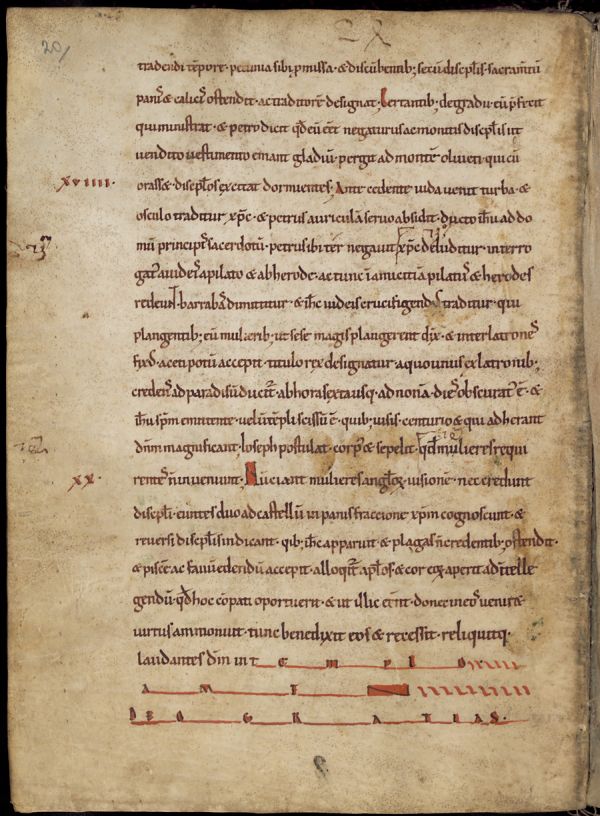 20,
tradendi tēpore · pecunia sibi ꝓmissa · & discūbentib; secū discipl̄is · sacram̄tū
panis & calicis ostendit · ac traditorē designat · Certantib; de gradu · eū p̄fecit
qui ministrat · & petro dicit negaturus ac monitis discipl̄is ut
vendito vestimento emant gladiū · pergit ad montē oliveti · qui cū
xviiii · orass& discipl̄os excitat dormientes · Ante cedente iuda venit turba · &
osculo traditur xp̄c · & petrus auriculā servo absidit · ducto ih̄u ad do
mū principis sacerdotū · petrus ibi ter negavit xp̄c deluditur · interro
gat auder& a pilato & ab herode · ac tunc īamicitiā pilatus & herodes
barrabā dimittitur · & ih̄c iudeis crucifigendus traditur · qui
plangentib; eū mulierib; ut sese magis plangerent dix̄ · & inter latrones
fixus · aceti potū accepit · titulo rex designatur · a quo unus ex latronib;
credens ad paradisū ducit · ab hora sexta usq; ad nonā · dies obscurat ē · &
ih̄u sp̄m emittente · velū tēpli scissū ē · quib; visis · centurio & qui adherant
dn̄m magnificant · Ioseph postulat · corpus & sepelit · qd̄ mulieres requi
xx · rentes n̄ inveniunt; Nūciant mulieres angl̄oꝝ visionē · nec credunt
discipl̄i · euntes duo ad castellū in panis fraccione xp̄m cognoscunt · &
reversi discipl̄is indicant · qib; ih̄c apparuit & plagas n̄ credentib; ostendit ·
& piscē ac favū edendū accepit · alloqit apl̄os & cor eoꝝ aperit ad n̄telle
gendū · qd̄ hoc eo pati oportuerit · & ut illic donec
virtus ammonuit · tunc benedixit eos & recessit · reliquitq;
laudantes dm̄ in t e m p l o
A M E
D E O G R A T I A S ·